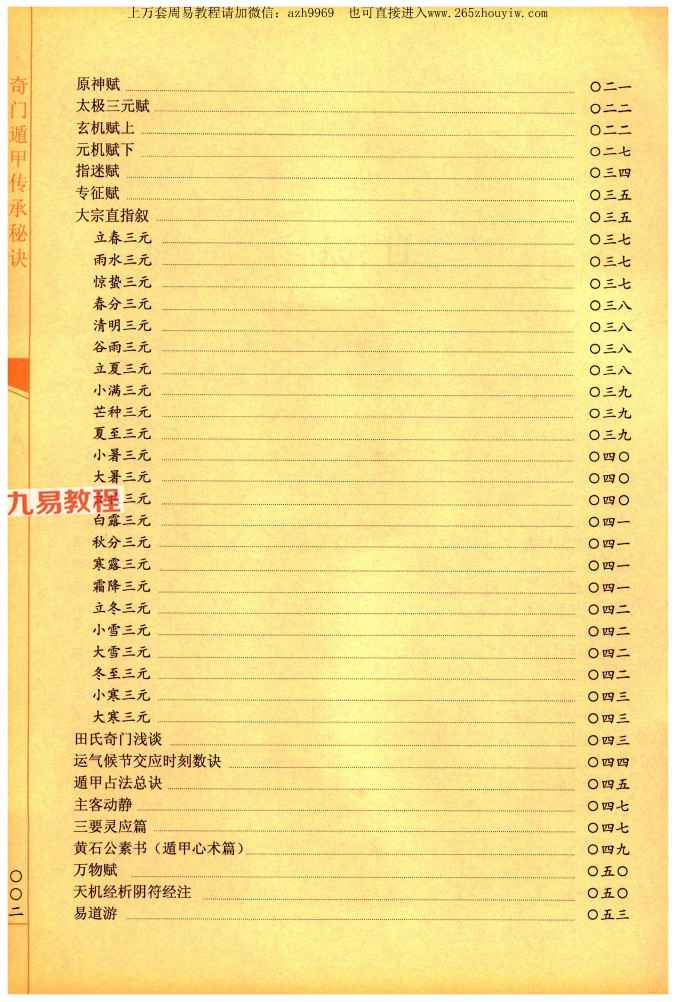 上万套周易教程请加微信：azh9969 也可直接进入www.265zhouyiw.com
奇门遁甲传承秘诀
原神赋 〇二一
太极三元赋 〇二二
玄机赋上 〇二二
元机赋下 〇二七
指迷赋 〇三四
专征赋 〇三五
大宗直指叙 〇三五
立春三元 〇三七
雨水三元 〇三七
惊蛰三元 〇三七
春分三元 〇三八
清明三元 〇三八
谷雨三元 〇三八
立夏三元 〇三八
小满三元 〇三九
芒种三元 〇三九
夏至三元 〇三九
小暑三元 〇四〇
大暑三元 〇四〇
三元 〇四〇
九易教程
白露三元 〇四一
秋分三元 〇四一
寒露三元 〇四一
霜降三元 〇四一
立冬三元 〇四二
小雪三元 〇四二
大雪三元 〇四二
冬至三元 〇四二
小寒三元 〇四三
大寒三元 〇四三
田氏奇门浅谈 〇四三
运气候节交应时刻数诀 〇四四
遁甲占法总诀 〇四五
主客动静 〇四七
三要灵应篇 〇四七
黄石公素书（遁甲心术篇） 〇四九
万物赋 〇五〇
天机经析阴符经注 〇五〇
易道游 〇五三
〇〇二